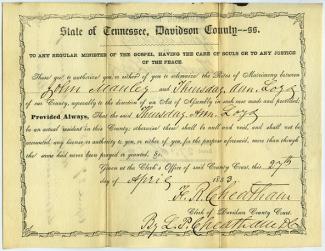 State of Tennessee, Davidson County--ss.
TO ANY REGULAR MINISTER OF THE GOSPEL, HAVING THE CARE OF SOULS OR TO ANY JUSTICE
OF THE PEACE.
These are to authorize you or either of you to solemnize the Rites of Matrimony between
John Manley and Thursday Ann Loyd
of our County, agreeably to the direction of an Act of Assembly in such case made and provided,
Provided Always, That the said Thursday Ann Loyd
be an actual resident in this County; otherwise these shall be null and void, and shall not be
accounted any license or authority to you, or either of you, for the purpose aforesaid, more than though
the same had never been prayed or granted.
Given at the Clerk's Office of said County Court, this 27th
day of April 1863.
F. R. Cheatham
Clerk of Davidson County Court.
By L. P. Cheatham DC